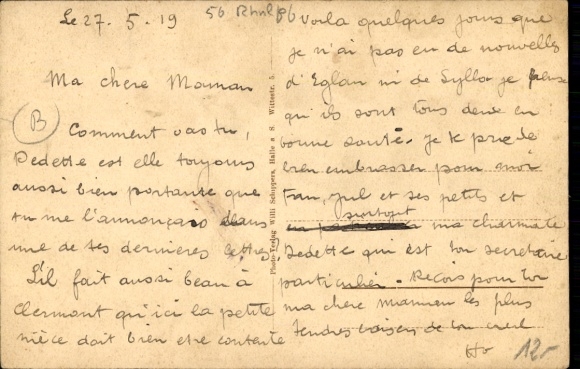 Le 27. 5. 19
Ma chere Maman
B
Comment vas tu,
Dedette est elle toujours
aussi bien portante que
tu me l'annonçais dans
une de tes dernieres lettres
S'il fait aussi beau à
Clermont qu'ici la petite
nièce doit bien etre contente
Photo-Verlag Willi Scheppers, Halle a S. Wittestr. 5.
Voila quelques jours que
je n'ai pas eu de nouvelles
d'Eglan ni de Sylla je pense
qu'ils sont tous deux en
bonne santé. Je te prie de
bien embrasser pour moi
Fran, Jul et ses petits et
surtout
ma charmante
Dedette qui est ton secretaire
particulier. Reçois pour toi
ma chere maman les plus
tendres baisers de ton
12-